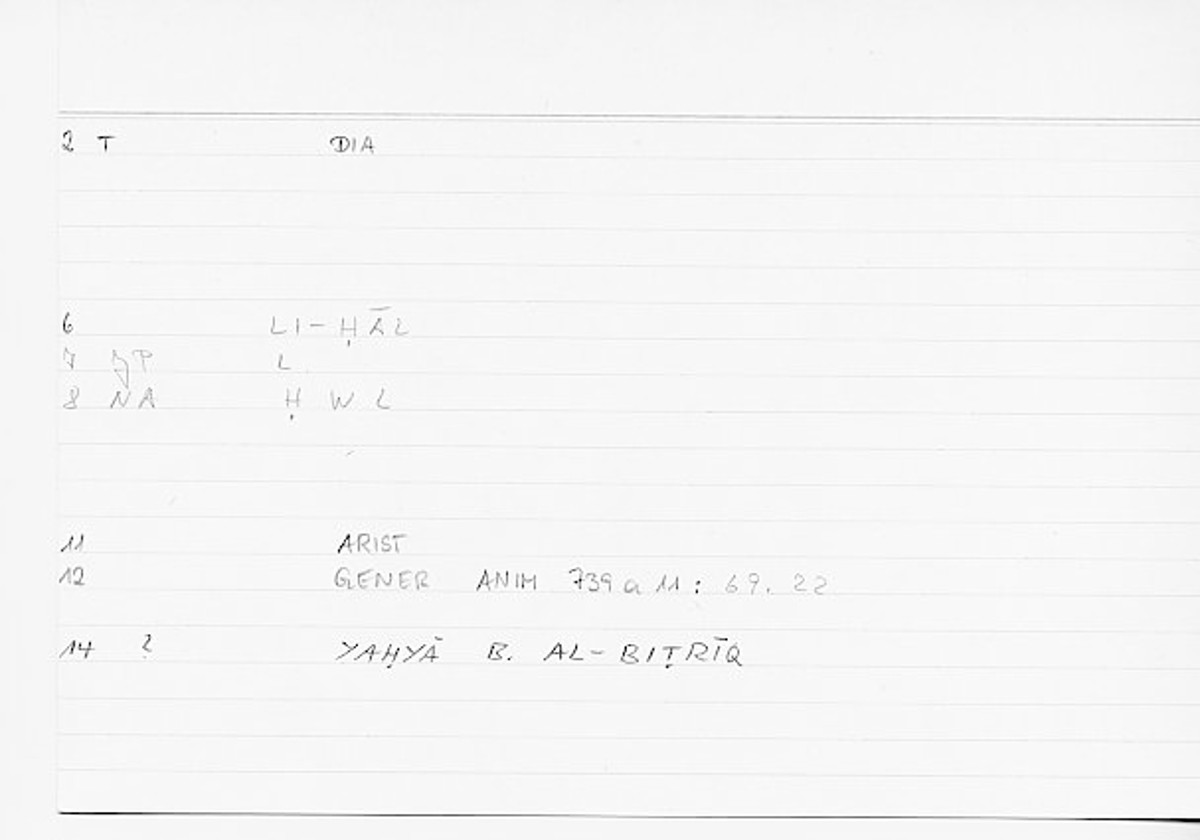 2 T DIA
6 LI-ḤĀL
7 JP L
8 NA Ḥ W L
11 ARIST
12 GENER ANIM 739 a 11 : 69. 22
14 ? YAḤYĀ B. AL-BIṬRĪQ